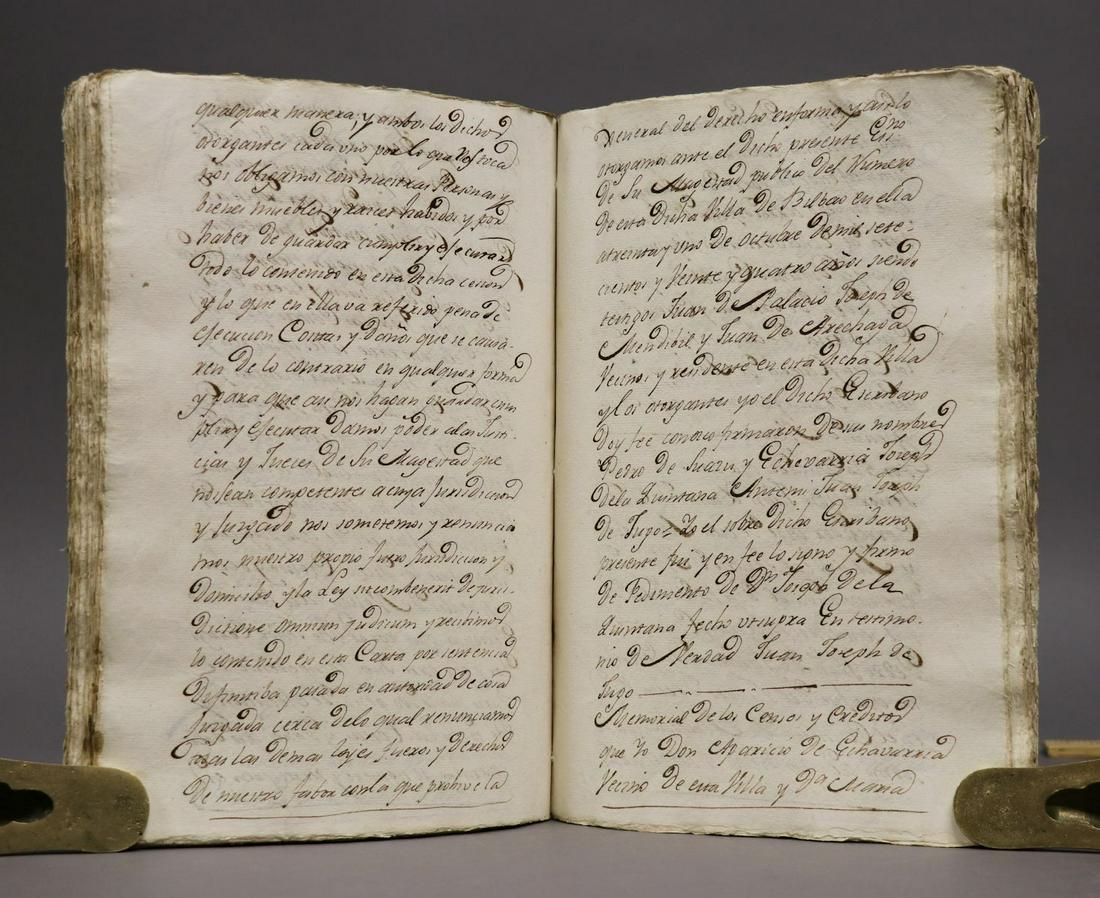 qualquier manera; y ambos los dichos
otorgantes cada vno por lo que nos toca
nos obligamos con nuestras Personas y
bienes muebles y raices habidos y por
haber de guardar cumplir y executar
todo lo contenido en esta dicha cesion
y lo que en ella va referido pena de
execucion Costas y daños que se causa-
ren de lo contrario en qualquier forma
y para que asi nos hagan guardar cum
plir y executar Damos poder a las Justi-
cias y Jueces de Su Magestad que
nos sean competentes a cuya Jurisdicion
y Juzgado nos sometemos y renuncia
mos nuestro propio fuero Jurisdicion y
Domicilio y la Ley si combenerit de juris
Dictione omnium judicum y recivimos
lo contenido en esta Carta por sentencia
Definitiba pasada en autoridad de cosa
Juzgada cerca de lo qual renunciamos
Todas las demas leyes fueros y derechos
De nuestro fabor con la que prohive la
General del derecho en forma y asi lo
otorgamos ante el dicho presente Essno
de Su Magestad publico del Numero
de esta dicha Villa de Bilbao en ella
a treinta y vno de octubre de mil sete-
cientos y Veinte y quatro años siendo
testigos Juan de Palacio Joseph de
Mendibil y Juan de Arechaba
Vecinos y residente en esta dicha Villa
y los otorgantes yo el dicho Escribano
doy fee conozco firmaron de sus nombres
Pedro de y Echevarria Joseph
de la Quintana Antemi Juan Joseph
de Yo el sobre dicho Escribano
presente fui y en fee lo signo y firmo
de Pedimento de Dn de la
Quintana fecho vt supra En testimo-
nio de Verdad Juan Joseph de
Memorial de los Censos y Creditos
que Yo Don Aparicio de Echavarria
Vecino de esta Villa y Da Maria